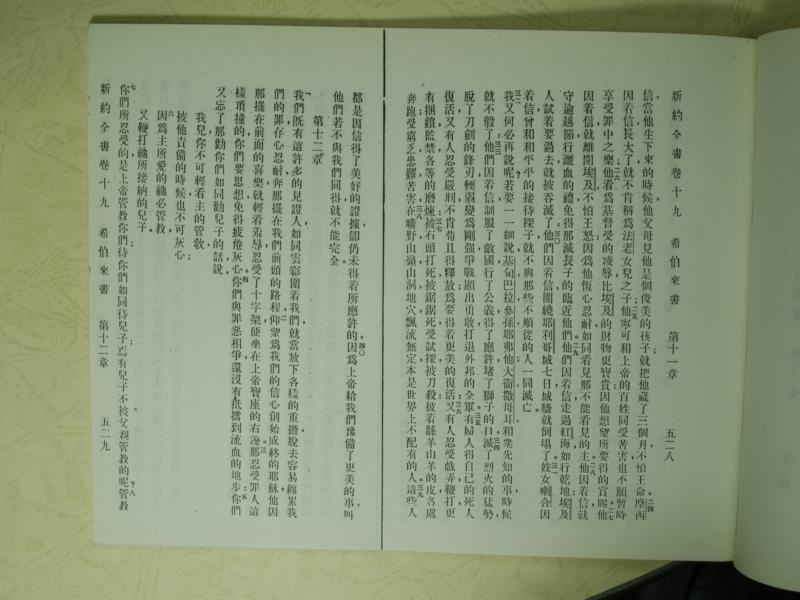 新約全書卷十九　希伯來書　第十一章　五二八
信當他生下來的時候他父母見他是個俊美的孩子就把他藏了三個月不怕王命二四摩西
因着信長大了就不肯稱爲法老女兒之子二五他寧可和上帝的百姓同受苦害也不願暫時
享受罪中之樂二六他看爲基督受的凌辱比埃及的財物更寶貴因他想望所要得的賞賜二七他
因着信就離開埃及不怕王怒因爲他恆心忍耐如同看見那不能看見的主二八他因着信就
守逾越節行灑血的禮免得那滅長子的臨近他們二九他們因着信走過紅海如行乾地埃及
人試着要過去就被吞滅了三〇他們因着信圍繞耶利哥城七日城牆就倒塌了三一妓女喇合因
着信曾和和平平的接待探子就不與那些不順從的人一同滅亡
三二我又何必再說呢若要一一細說基甸巴拉參孫耶弗他大衛撒母耳和衆先知的事時候
就不彀了三三他們因着信制服了敵國行了公義得了應許堵了獅子的口三四滅了烈火的猛勢
脫了刀劍的鋒刃輭弱變爲剛強爭戰顯出勇敢打退外邦的全軍三五有婦人得自己的死人
復活又有人忍受嚴刑不肯苟且得釋放爲要得着更美的復活三六又有人忍受戲弄鞭打更
有捆鎖監禁各等的磨煉三七被石頭打死被鋸鋸死受試探被刀殺披着緜羊山羊的皮各處
奔跑受窮乏患難苦害三八在曠野山嶺山洞地穴飄流無定本是世界上不配有的人三九這些人
都是因信得了美好的證據卻仍未得着所應許的四〇因爲上帝給我們豫備了更美的事叫
他們若不與我們同得就不能完全
第十二章
一我們旣有這許多的見證人如同雲彩圍着我們就當放下各樣的重擔脫去容易纏累我
們的罪存心忍耐奔那擺在我們前頭的路程二仰望爲我們的信心創始成終的耶穌他因
那擺在前面的喜樂就輕看羞辱忍受了十字架便坐在上帝寶座的右邊三那忍受罪人這
樣頂撞的你們要思想免得疲倦灰心四你們與罪惡相爭還沒有抵擋到流血的地步五你們
又忘了那勸你們如同勸兒子的話說
我兒你不可輕看主的管敎
被他責備的時候也不可灰心
六因爲主所愛的他必管教
又鞭打他所接納的兒子
七你們所忍受的是上帝管教你們待你們如同待兒子焉有兒子不被父親管教的呢八管教
新約全書卷十九　希伯來書　第十二章　五二九